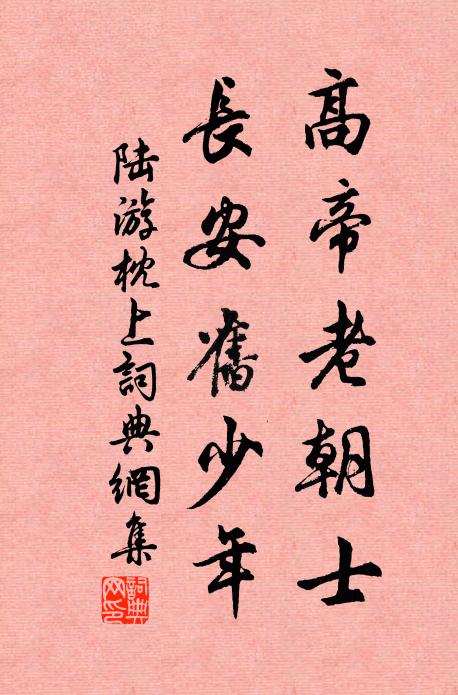 高帝老朝士
長安舊少年
陆游枕上詞典網集
詞典
网印